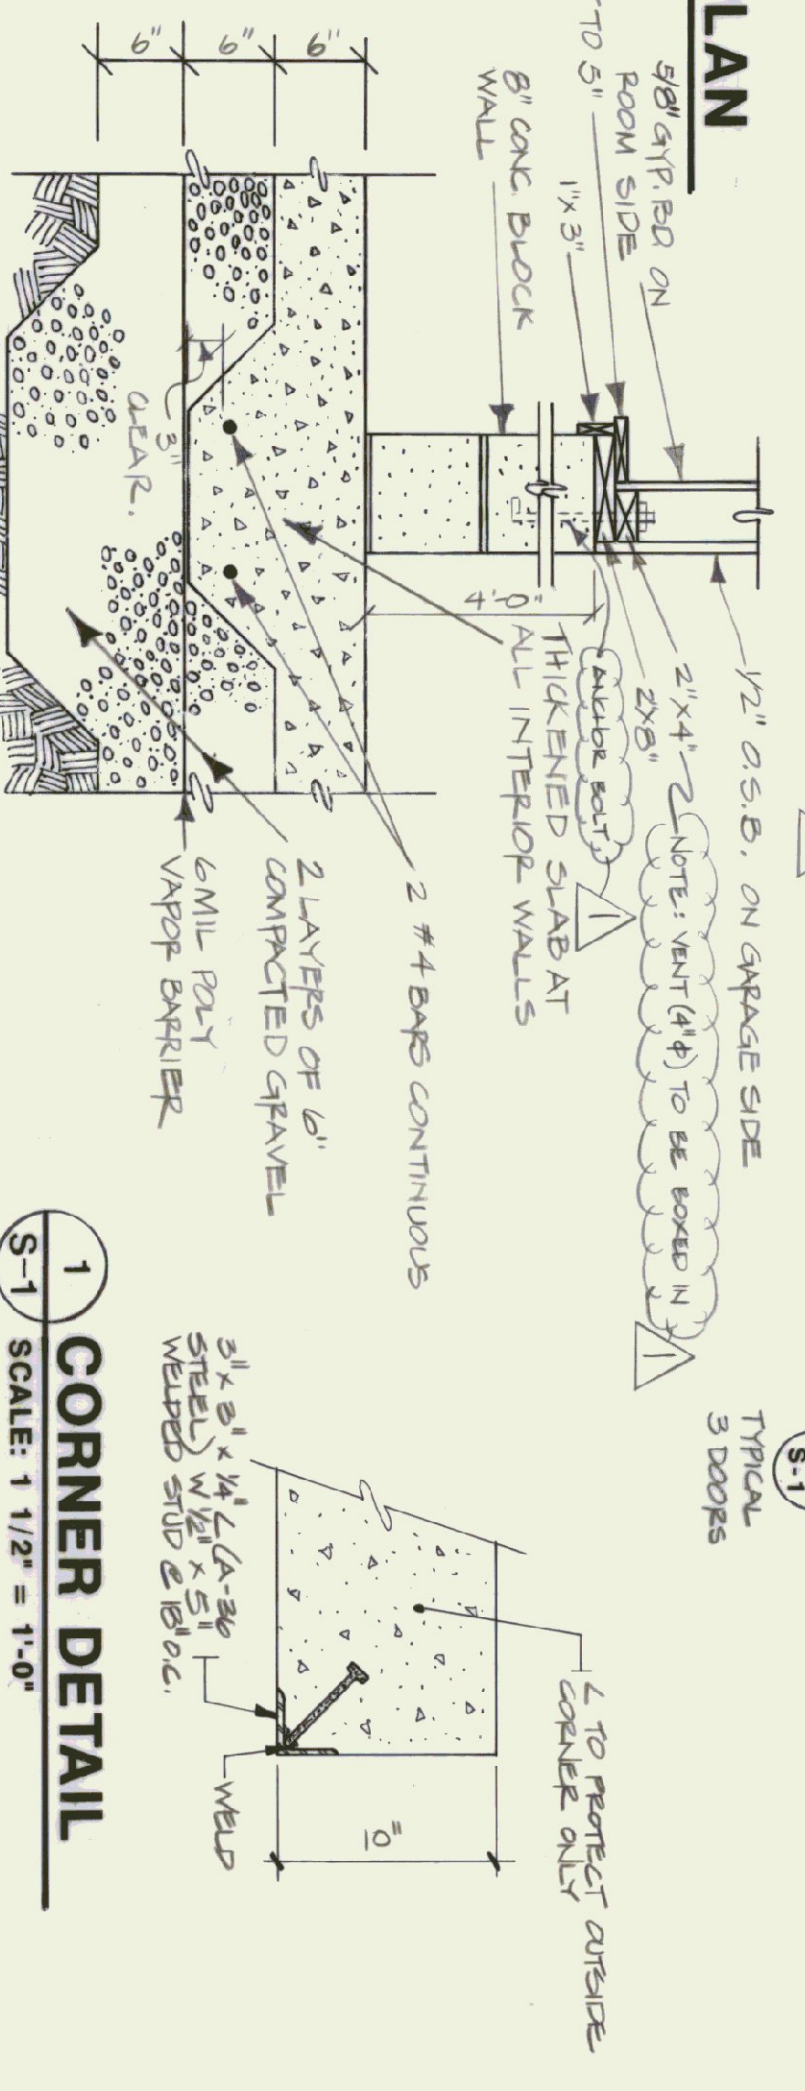 LAN
5/8" GYP. BD. ON
ROOM SIDE
TO 5"
1" x 3"
8" CONC. BLOCK
WALL
6"
6"
6"
1/2" O.S.B. ON GARAGE SIDE
2" x 4"
NOTE: VENT (4"φ) TO BE BOXED IN
1
2x8"
ANCHOR BOLT
1
4'-0"
THICKENED SLAB AT
ALL INTERIOR WALLS
3"
CLEAR.
2 #4 BARS CONTINUOUS
2 LAYERS OF 6"
COMPACTED GRAVEL
6 MIL POLY
VAPOR BARRIER
S-1
TYPICAL
3 DOORS
∠ TO PROTECT OUTSIDE
CORNER ONLY
10"
3" x 3" x 1/4" ∠ (A-36
STEEL) W 1/2" x 5"
WELDED STUD @ 18" O.C.
WELD
1
S-1
CORNER DETAIL
SCALE: 1 1/2" = 1'-0"